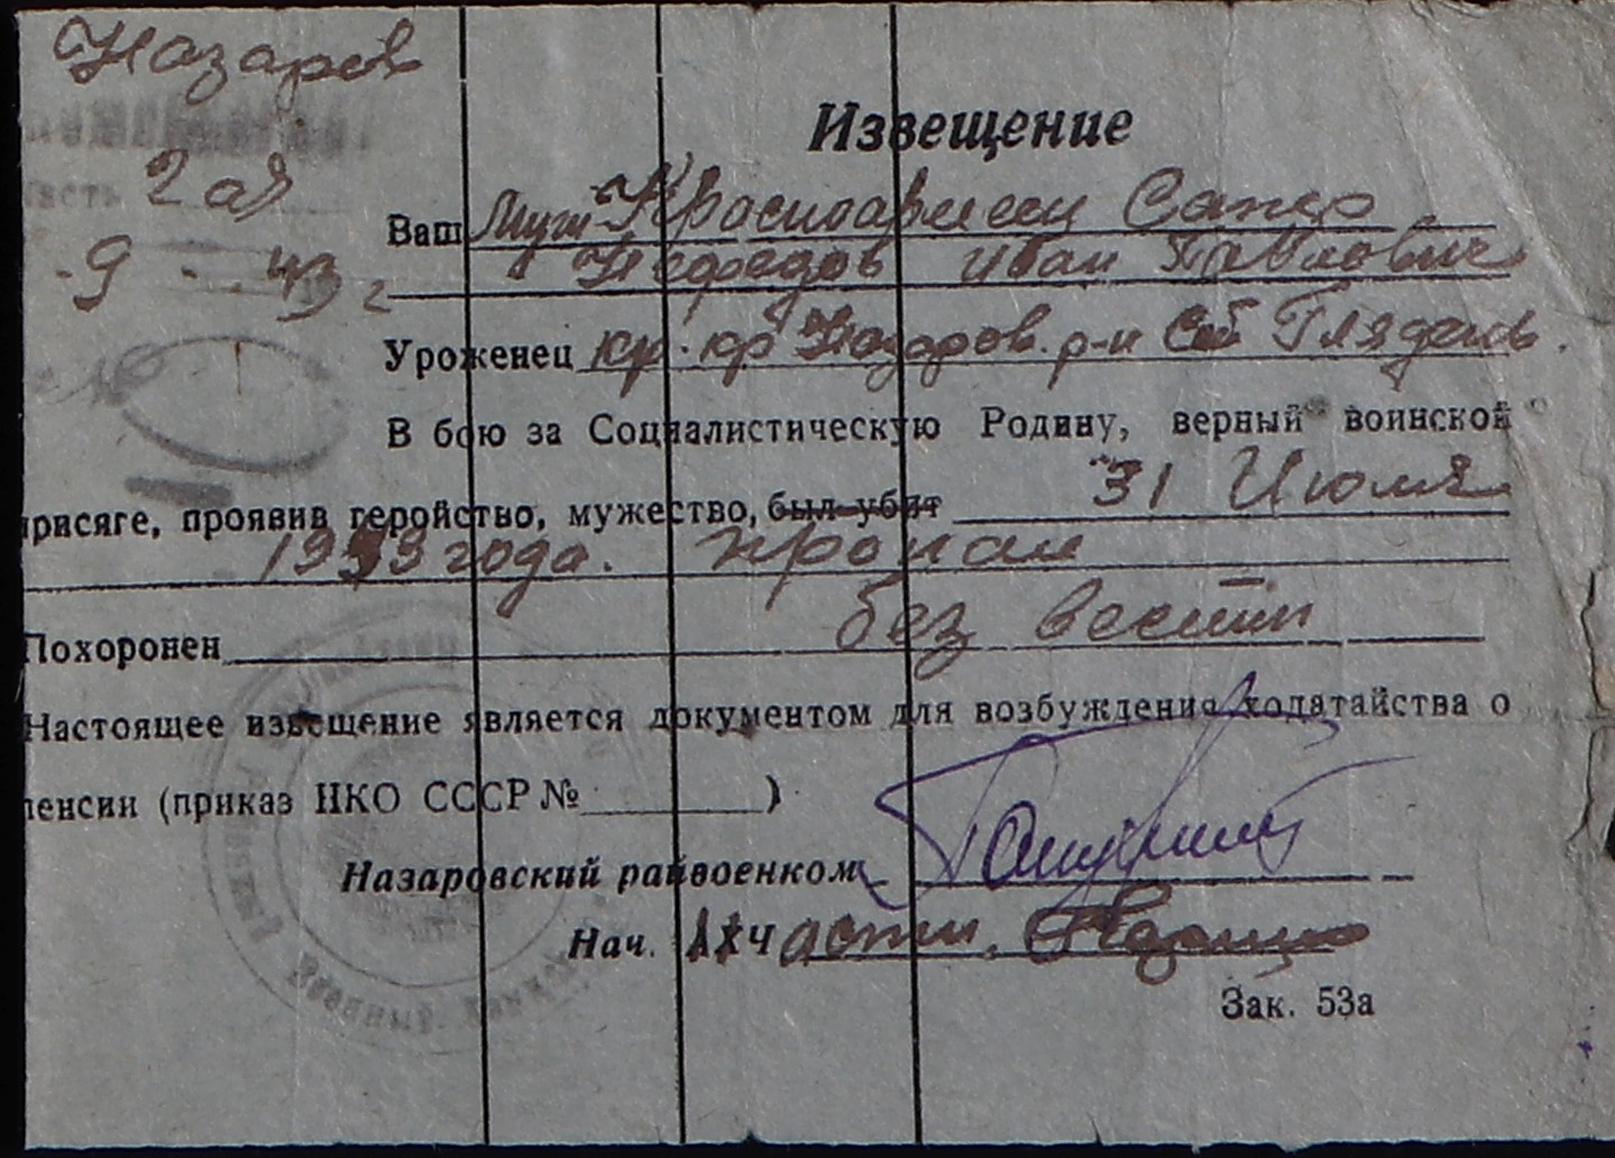 Назаров
2ая
Извещение
Ваш Муж Красноармеец Сапер
-9 - 43 г
Нефедов Иван Павлович
Уроженец кр. кр Назаров. р-н Гляден
В бою за Социалистическую Родину, верный воинской
присяге, проявив геройство, мужество, был убит 31 Июля
1943 года. пропал
Похоронен без вести
Настоящее извещение является документом для возбуждения ходатайства о
пенсии (приказ НКО СССР № )
Назаровский райвоенком
Нач. части.
Зак. 53а